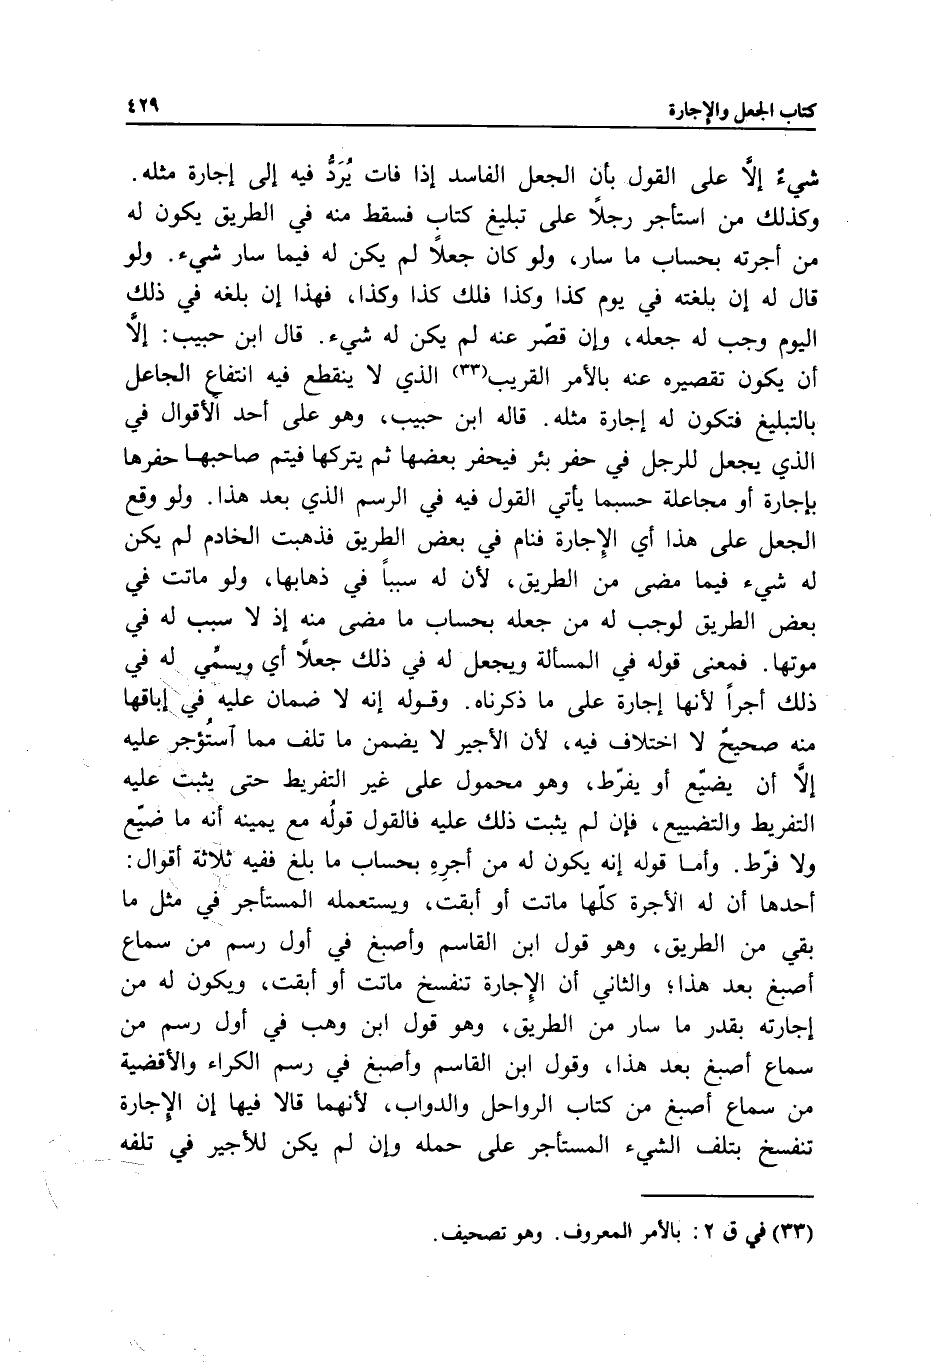 كتاب الجعل والإجارة ٤٢٩
شيءٌ إلَّا على القول بأن الجعل الفاسد إذا فات يُرَدُّ فيه إلى إجارة مثله.
وكذلك من استأجر رجلًا على تبليغ كتاب فسقط منه في الطريق يكون له
من أجرته بحساب ما سار، ولو كان جعلًا لم يكن له فيما سار شيء. ولو
قال له إن بلغته في يوم كذا وكذا فلك كذا وكذا، فهذا إن بلغه في ذلك
اليوم وجب له جعله، وإن قصّر عنه لم يكن له شيء. قال ابن حبيب: إلَّا
أن يكون تقصيره عنه بالأمر القريب(٣٣) الذي لا ينقطع فيه انتفاع الجاعل
بالتبليغ فتكون له إجارة مثله. قاله ابن حبيب، وهو على أحد الأقوال في
الذي يجعل للرجل في حفر بئر فيحفر بعضها ثم يتركها فيتم صاحبها حفرها
بإجارة أو مجاعلة حسبما يأتي القول فيه في الرسم الذي بعد هذا. ولو وقع
الجعل على هذا أي الإجارة فنام في بعض الطريق فذهبت الخادم لم يكن
له شيء فيما مضى من الطريق، لأن له سبباً في ذهابها، ولو ماتت في
بعض الطريق لوجب له من جعله بحساب ما مضى منه إذ لا سبب له في
موتها. فمعنى قوله في المسألة ويجعل له في ذلك جعلًا أي ويسمِّي له في
ذلك أجراً لأنها إجارة على ما ذكرناه. وقوله إنه لا ضمان عليه في إباقها
منه صحيحٌ لا اختلاف فيه، لأن الأجير لا يضمن ما تلف مما آستُؤجر عليه
إلَّا أن يضيّع أو يفرّط، وهو محمول على غير التفريط حتى يثبت عليه
التفريط والتضييع، فإن لم يثبت ذلك عليه فالقول قولُه مع يمينه أنه ما ضيّع
ولا فرّط. وأما قوله إنه يكون له من أجرِهِ بحساب ما بلغ ففيه ثلاثة أقوال:
أحدها أن له الأجرة كلّها ماتت أو أبقت، ويستعمله المستأجر في مثل ما
بقي من الطريق، وهو قول ابن القاسم وأصبغ في أول رسم من سماع
أصبغ بعد هذا؛ والثاني أن الإجارة تنفسخ ماتت أو أبقت، ويكون له من
إجارته بقدر ما سار من الطريق، وهو قول ابن وهب في أول رسم من
سماع أصبغ بعد هذا، وقول ابن القاسم وأصبغ في رسم الكراء والأقضية
من سماع أصبغ من كتاب الرواحل والدواب، لأنهما قالا فيها إن الإجارة
تنفسخ بتلف الشيء المستأجر على حمله وإن لم يكن للأجير في تلفه
(٣٣) في ق ٢: بالأمر المعروف. وهو تصحيف.